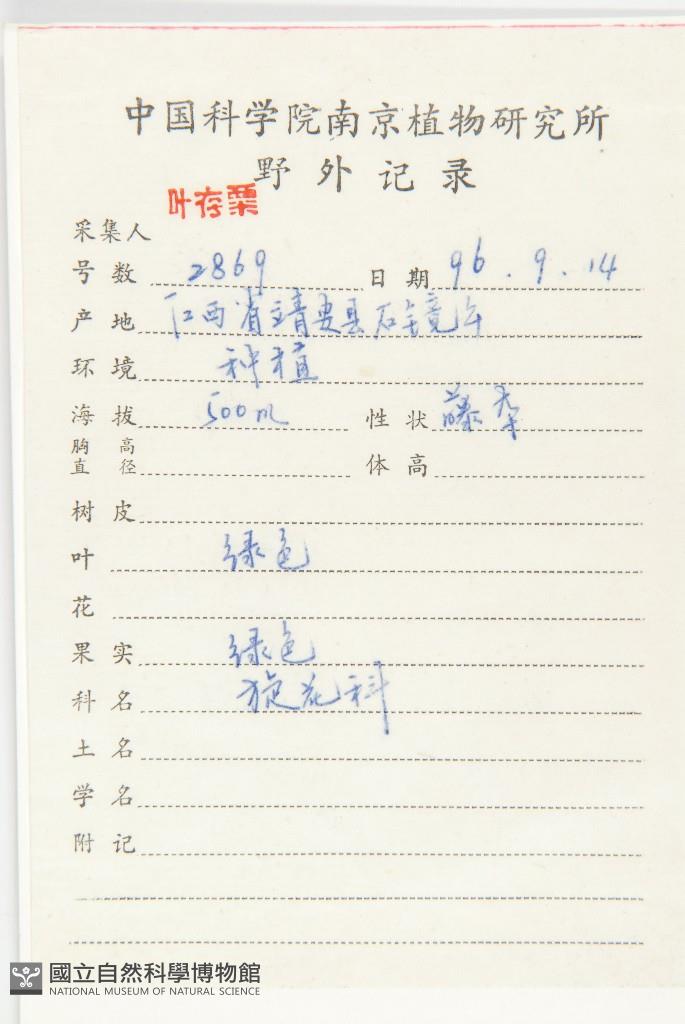 中国科学院南京植物研究所
野外记录
叶存粟
采集人
号数 2869 日期 96.9.14
产地 江西省靖安县石镜
环境 种植
海拔 500m 性状 藤本
胸高直径 体高
树皮
叶 绿色
花
果实 绿色
科名 旋花科
土名
学名
附记
國立自然科學博物館
NATIONAL MUSEUM OF NATURAL SCIENCE